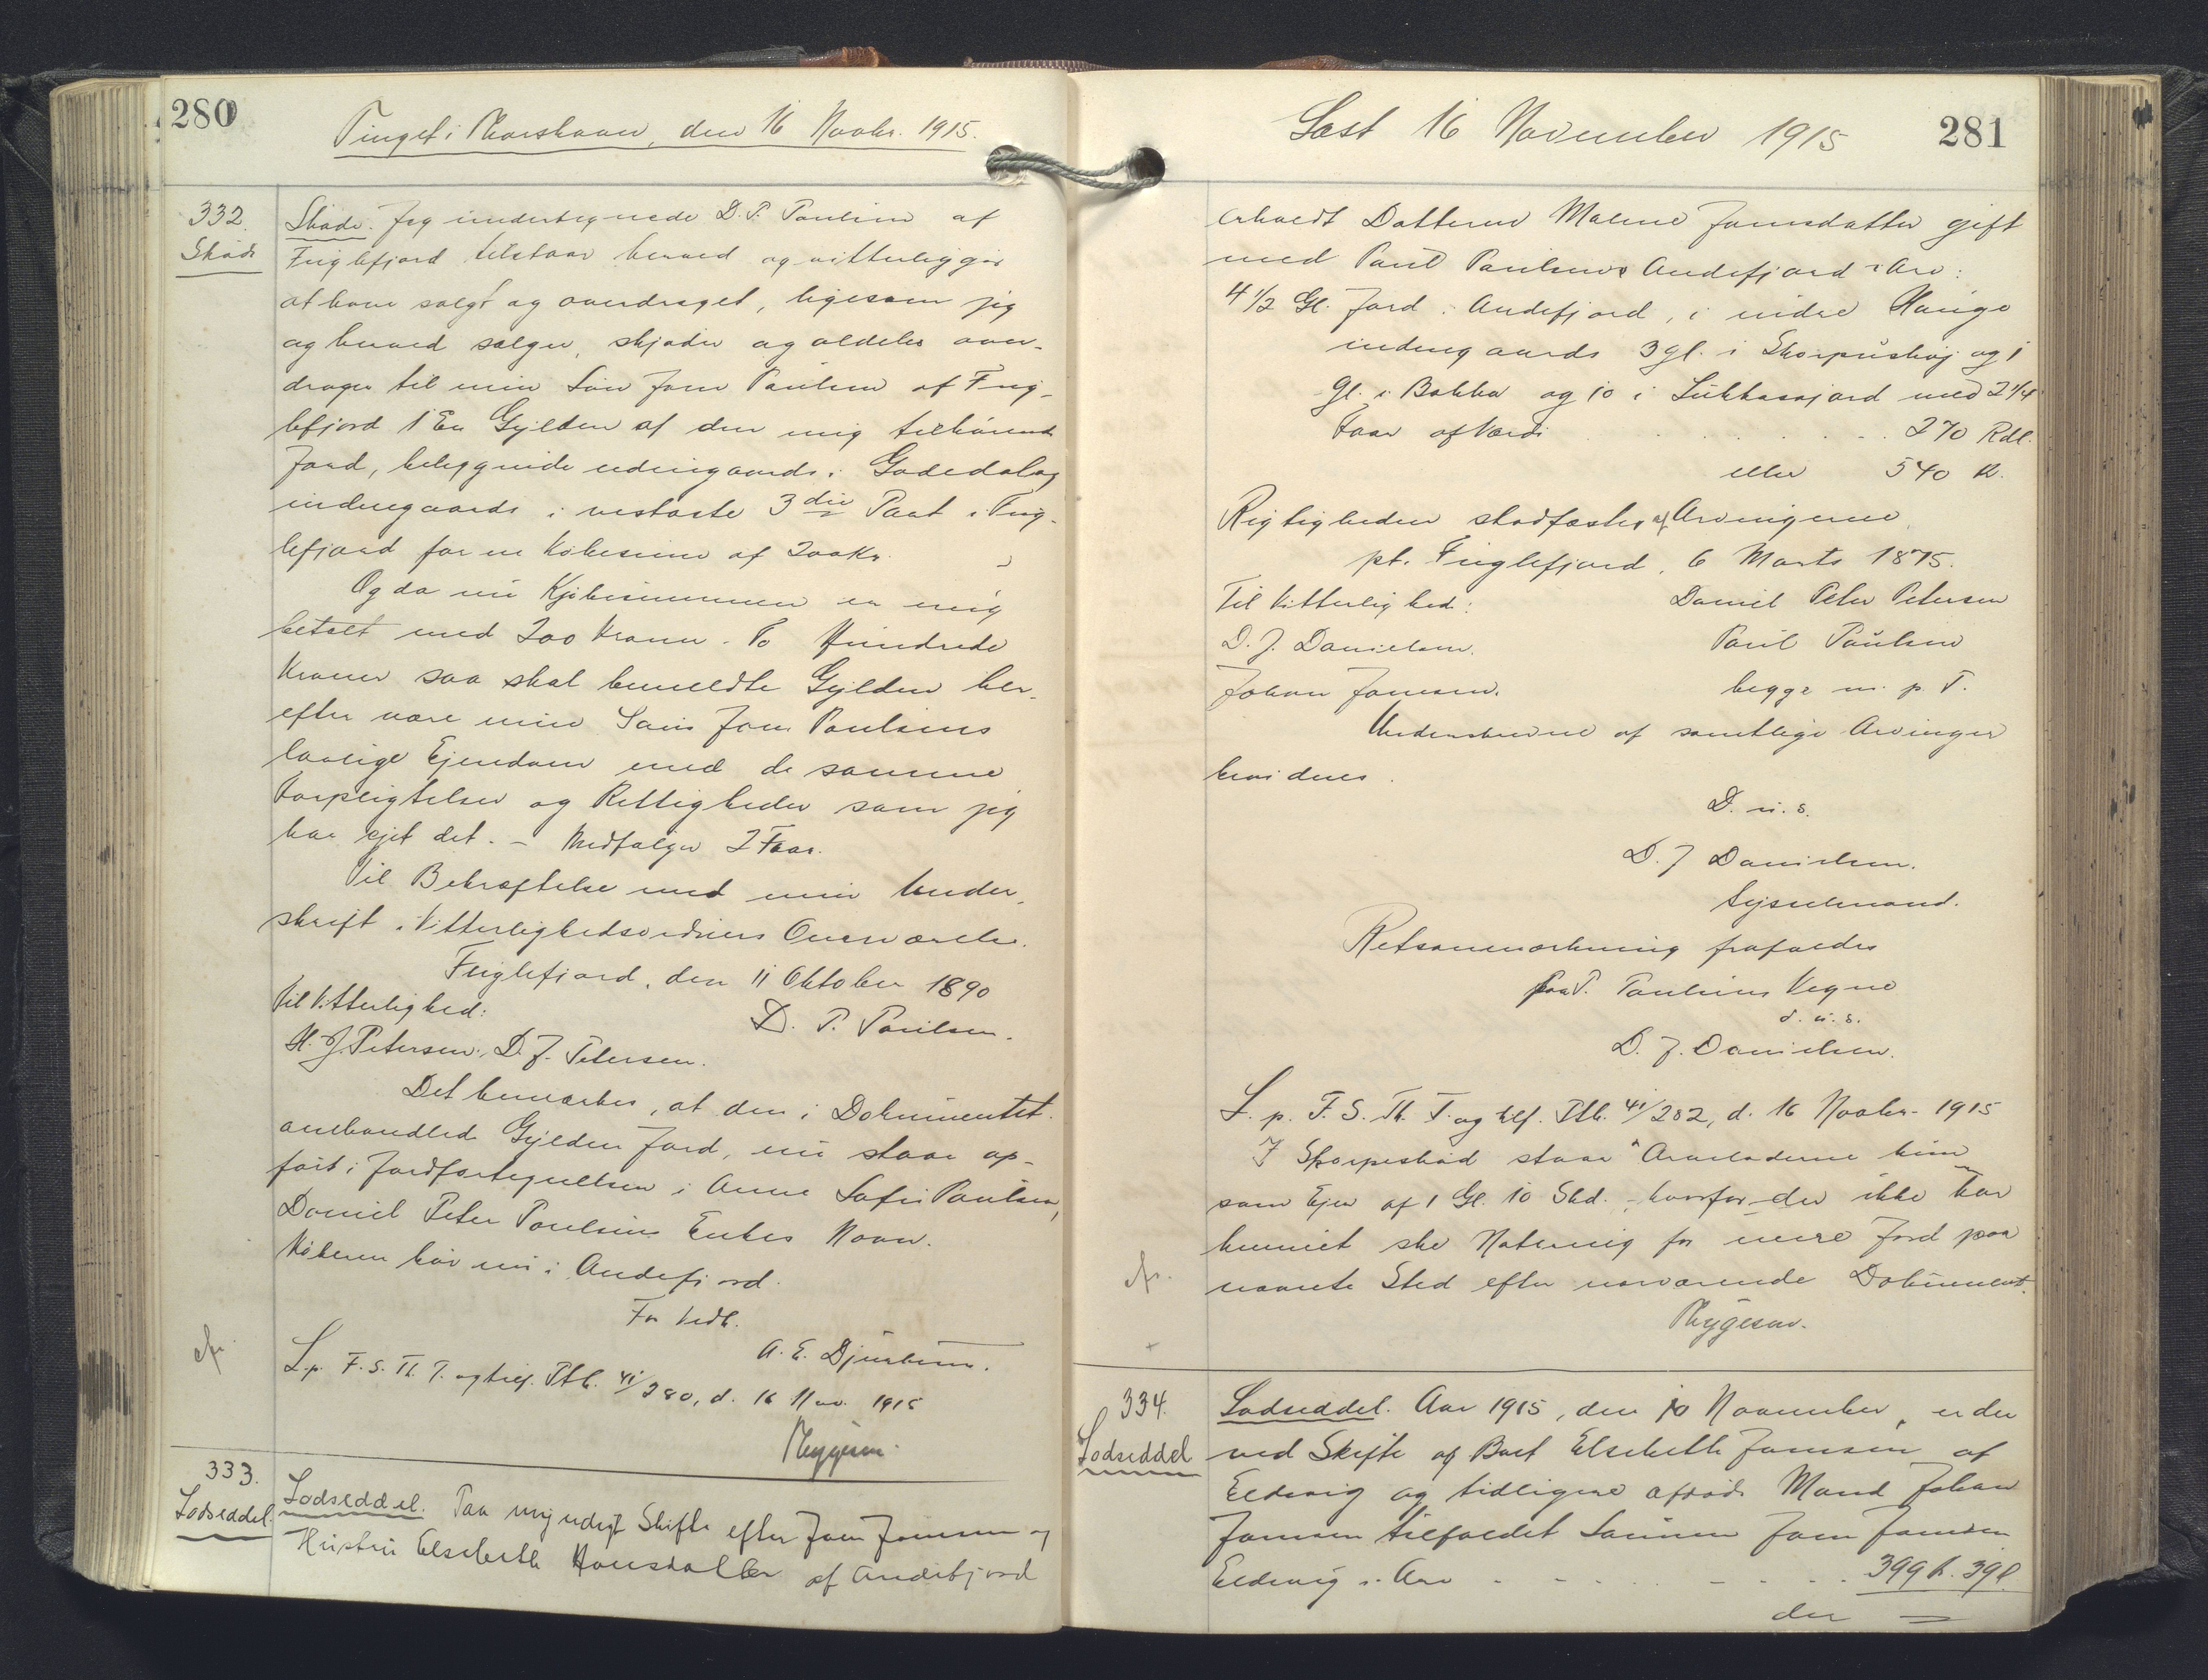 280
Tinget i Thorshavn, den 16 Novbr. 1915.
332.
Skøde
Skøde. Jeg undertegnede D. P. Paulsen af
Fuglefjord tilstaar herved og vitterliggør
at have solgt og overdraget, ligesom jeg
og herved sælger, skjøder og aldeles over-
drager til min Søn Joen Paulsen af Fug-
lefjord 1 En Gylden af den mig tilhørende
Jord, beliggende udengaards i Gødedalog
indengaards i vestaste 3die Part i Fug-
lefjord for en Købesum af 200 Kr.
Og da nu Kjøbesummen er mig
betalt med 200 Kroner - To Hundrede
Kroner saa skal bemeldte Gylden her-
efter være min Søns Joen Paulsens
lovlige Ejendom med de samme
Forpligtelser og Rettigheder som jeg
har ejet det. - Medfølger 2 Faar.
Til Bekræftelse med min Under-
skrift i Vitterlighedsvidners Overværelse.
Fuglefjord, den 11 Oktober 1890
Til Vitterlighed:
D. P. Paulsen.
H. J. Petersen, D. J. Petersen.
Det bemærkes, at den i Dokumentet
omhandlede Gylden Jord, nu staar op-
ført i Jordfortegnelsen i Anne Sofie Paulsen,
Daniel Peter Paulsens Enkes Navn.
Køberen bor nu i Andefjord.
For Vedk.
A. E. Djurhuus.
L. p. F. S. Th. T. og tilf. Ptb. 41/280, d. 16 Nov. 1915
Thygesen.
333.
Lodseddel.
Lodseddel. Paa myndigt Skifte efter Joen Joensen og
Hustru Elsebeth Hansdatter af Andefjord
Læst 16 November 1915
281
erholdt Datteren Malene Joensdatter gift
med Paul Paulsens Andefjord i Arv:
4 1/2 Gl. Jord i Andefjord, i nidre Hauge
indengaards 3 gl. i Skorpushøj og 1
gl. i Bakka og 10 i Lukkasajord med 2 1/4
Faar af Værdi . . . . . . . 270 Rdl.
eller 540 Kr.
Rigtigheden stadfæstes af Arvingerne
pt. Fuglefjord, 6 Marts 1875.
Til Vitterlighed:
Daniel Peter Petersen
D. J. Danielsen.
Paul Paulsen
Johan Joensen.
begge m. p. P.
Underskrevne af samtlige Arvinger
bevidnes.
D. u. s.
D. J Danielsen.
Sysselmand.
Retsanmærkning frafaldes
paa P. Paulsens Vegne
d. u. s.
D. J. Danielsen.
L. p. F. S. Th. T. og tilf. Ptb. 41/282, d. 16 Novbr. 1915
I Skorpeshød staar Arveladerne kun
som Ejer af 1 Gl. 10 Skd. - hvorfor der ikke har
kunnet ske Notering for mere Jord paa
nævnte Sted efter nærværende Dokument.
Thygesen.
334.
Lodseddel
Lodseddel. Aar 1915, den 10 November, er der
ved Skifte af Boet Elsebeth Joensen af
Eldevig og tidligere afdøde Mand Johan
Joensen tilfaldet Sønnen Joen Joensen
Eldevig i Arv - - - - - - 399 k. 39 ø.
der